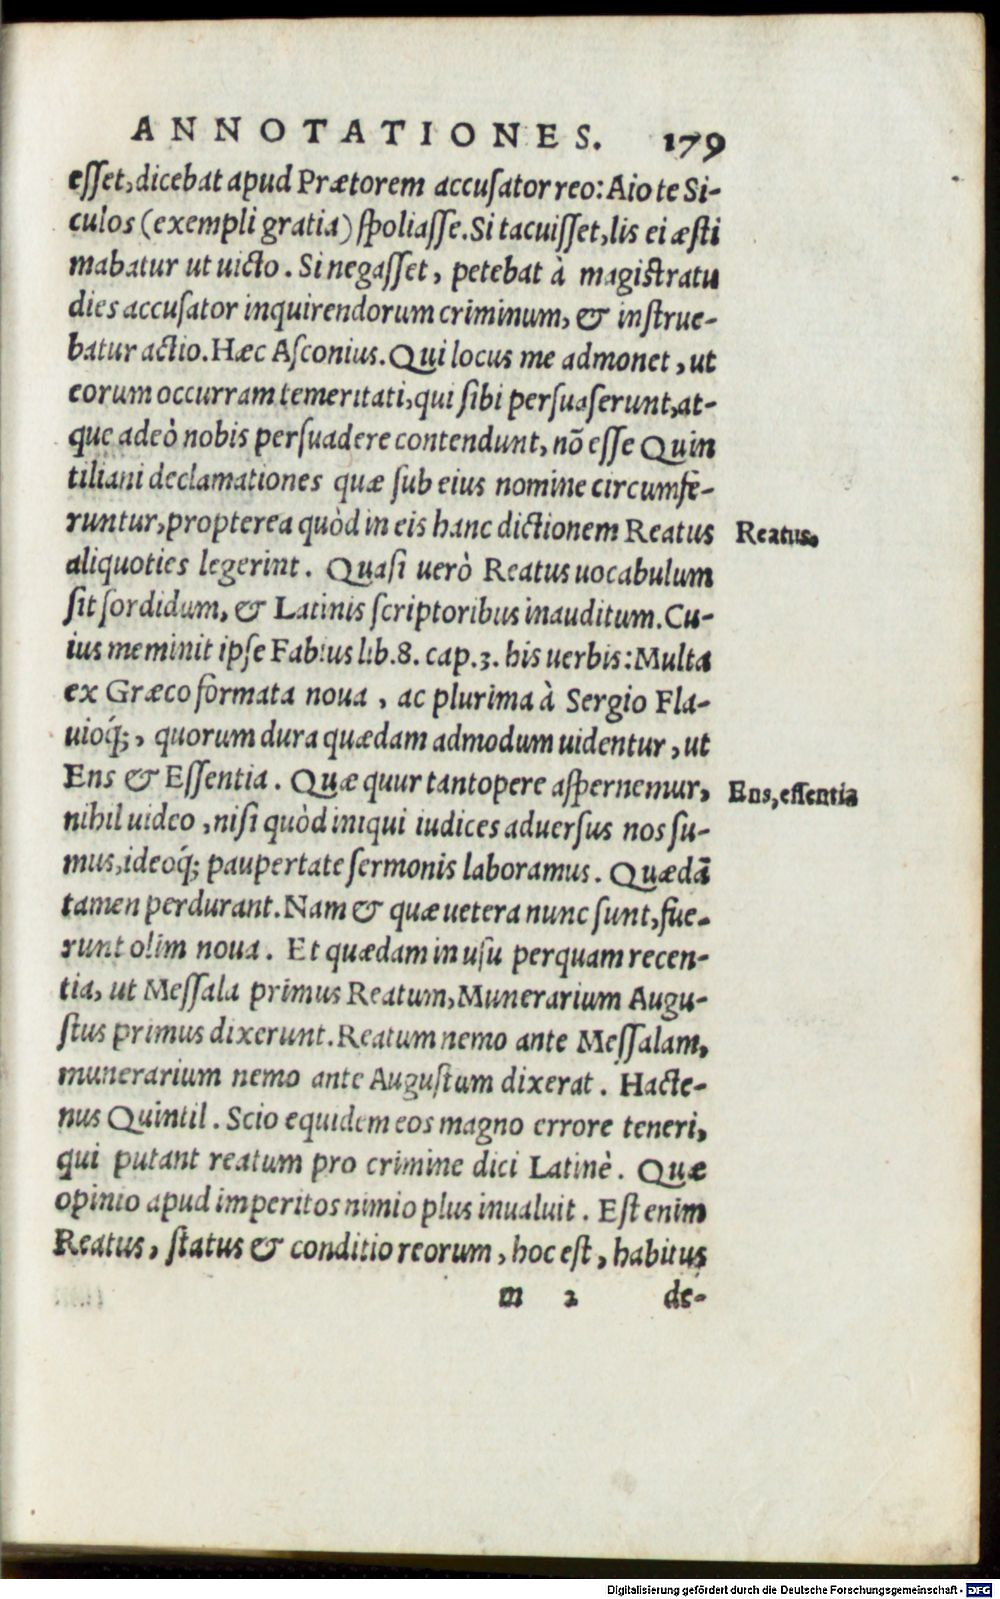 ANNOTATIONES. 179
esset, dicebat apud Prætorem accusator reo: Aio te Si-
culos (exempli gratia) spoliasse. Si tacuisset, lis ei æsti
mabatur ut uicto. Si negasset, petebat à magistratu
dies accusator inquirendorum criminum, & instrue-
batur actio. Hæc Asconius. Qui locus me admonet, ut
eorum occurram temeritati, qui sibi persuaserunt, at-
que adeò nobis persuadere contendunt, nõ esse Quin
tiliani declamationes quæ sub eius nomine circumfe-
runtur, propterea quòd in eis hanc dictionem Reatus
Reatus.
aliquoties legerint. Quasi uerò Reatus uocabulum
sit sordidum, & Latinis scriptoribus inauditum. Cu-
ius meminit ipse Fabius lib. 8. cap. 3. his uerbis: Multa
ex Græco formata noua, ac plurima à Sergio Fla-
uioq́;, quorum dura quædam admodum uidentur, ut
Ens & Essentia. Quæ quur tantopere aspernemur,
Ens, essentia
nihil uideo, nisi quòd iniqui iudices aduersus nos su-
mus, ideoq́; paupertate sermonis laboramus. Quædã
tamen perdurant. Nam & quæ uetera nunc sunt, fue-
runt olim noua. Et quædam in usu perquam recen-
tia, ut Messala primus Reatum, Munerarium Augu-
stus primus dixerunt. Reatum nemo ante Messalam,
munerarium nemo ante Augustum dixerat. Hacte-
nus Quintil. Scio equidem eos magno errore teneri,
qui putant reatum pro crimine dici Latinè. Quæ
opinio apud imperitos nimio plus inualuit. Est enim
Reatus, status & conditio reorum, hoc est, habitus
m 2 de-
Digitalisierung gefördert durch die Deutsche Forschungsgemeinschaft - DFG